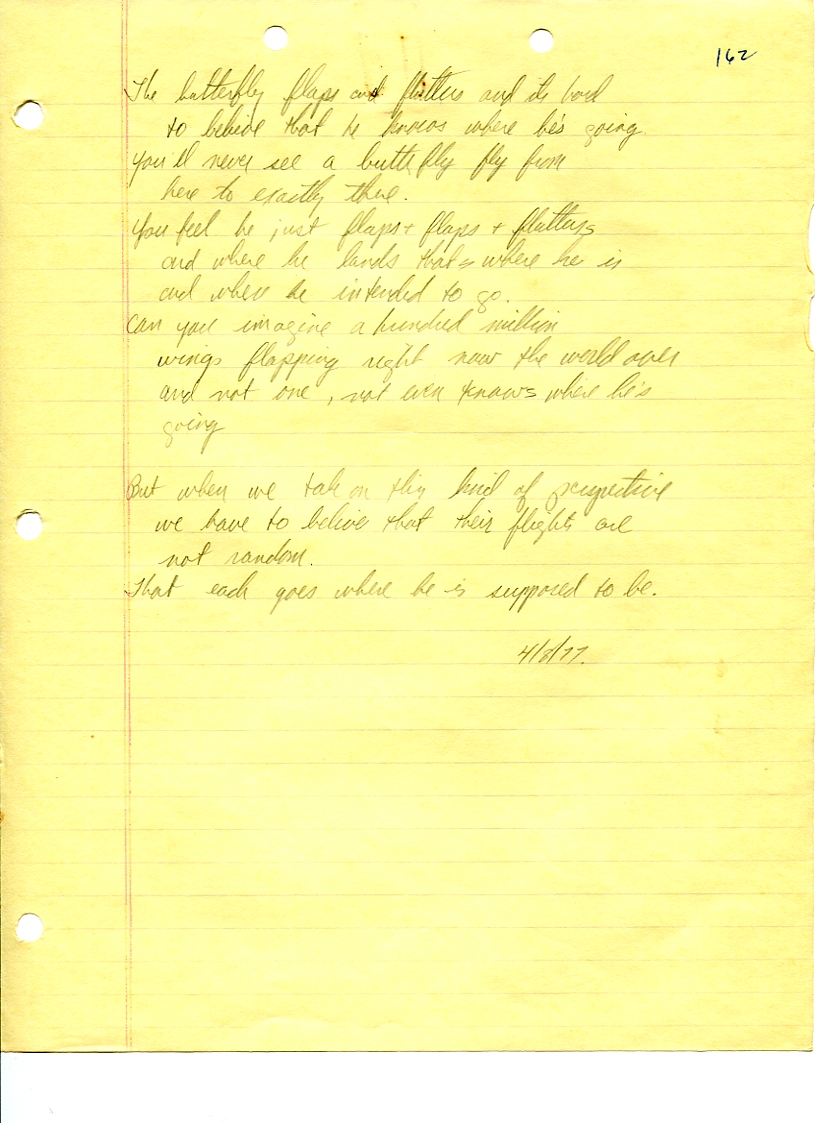 162
The butterfly flaps and flutters and its hard
to belive that he knows where he's going.
You'll never see a butterfly fly from
here to exactly there.
You feel he just flaps + flaps + flutters
and where he lands thats where he is
and where he intended to go.
Can you imagine a hundred million
wings flapping right now the world over
and not one, not even knows where he's
going
But when we take on this kind of perspective
we have to belive that their flights are
not random.
That each goes where he is supposed to be.
4/8/77.